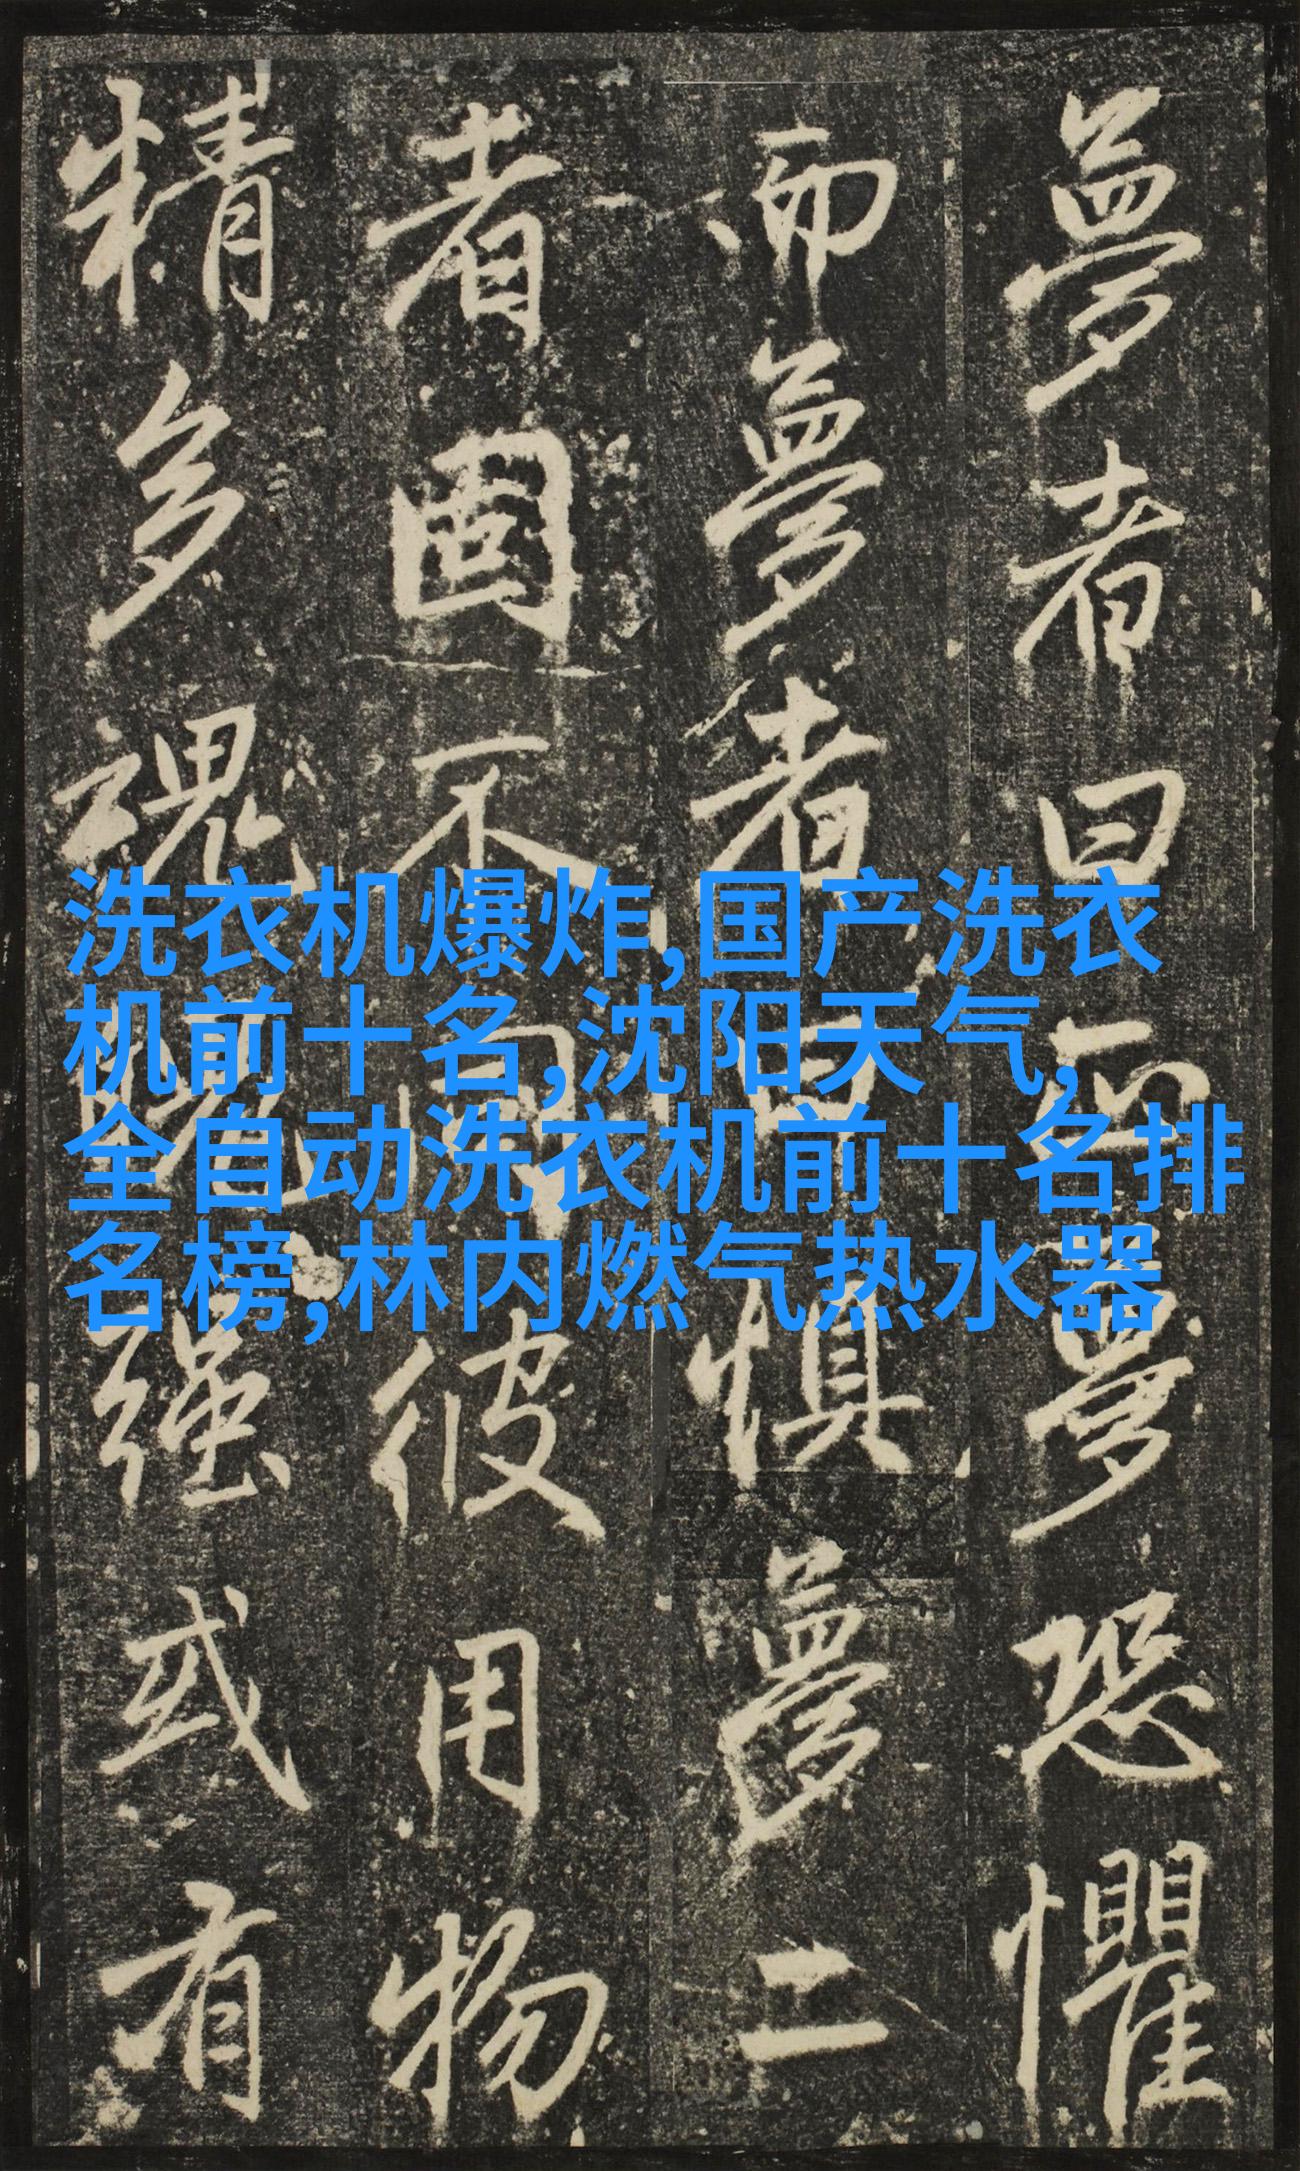 夢者曰夢恐懼
而夢者曰惧夢二
者固不同彼用物
精多魂魄强或有
洗衣机爆炸,国产洗衣
机前十名,沈阳天气,
全自动洗衣机前十名排
名榜,林内燃气热水器